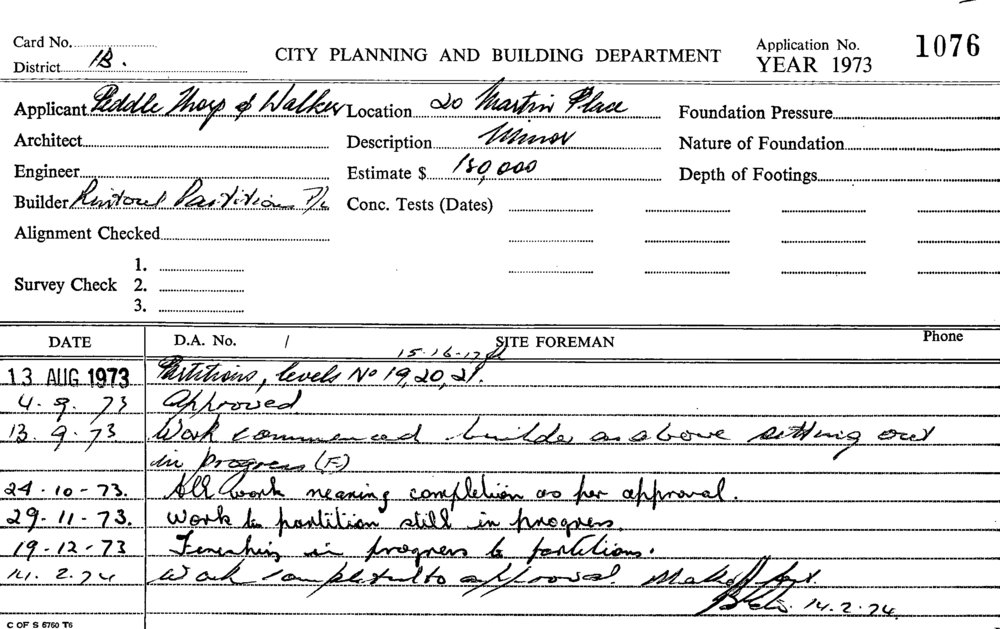 Card No.
CITY PLANNING AND BUILDING DEPARTMENT
Application No. 1076
District 1B.
YEAR 1973
Applicant Peddle Thorp & Walker Location 20 Martin Place Foundation Pressure
Architect Description Minor Nature of Foundation
Engineer Estimate $ 180,000 Depth of Footings
Builder Rintoul Partitions P/L Conc. Tests (Dates)
Alignment Checked
1.
Survey Check 2.
3.
DATE D.A. No. / SITE FOREMAN Phone
15-16-17
13 AUG 1973 Partitions, levels No 19, 20, 21.
4. 9. 73 Approved
13. 9. 73 Work commenced builder as above setting out
in progress (F.)
24-10-73. All work nearing completion as per approval.
29-11-73. Work to partition still in progress.
19-12-73 Finishing in progress to partitions.
14. 2. 74 Work completed to approval.
14.2.74.
C OF S 6760 T6